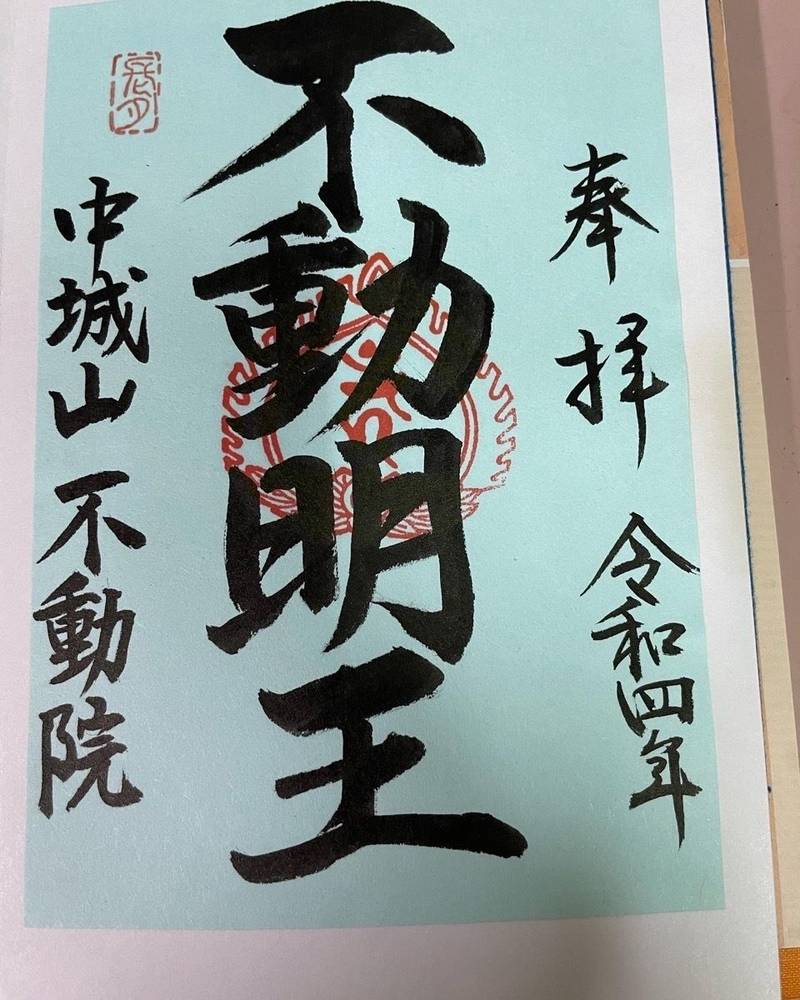 奉拝 令和四年
不動明王
中城山 不動院